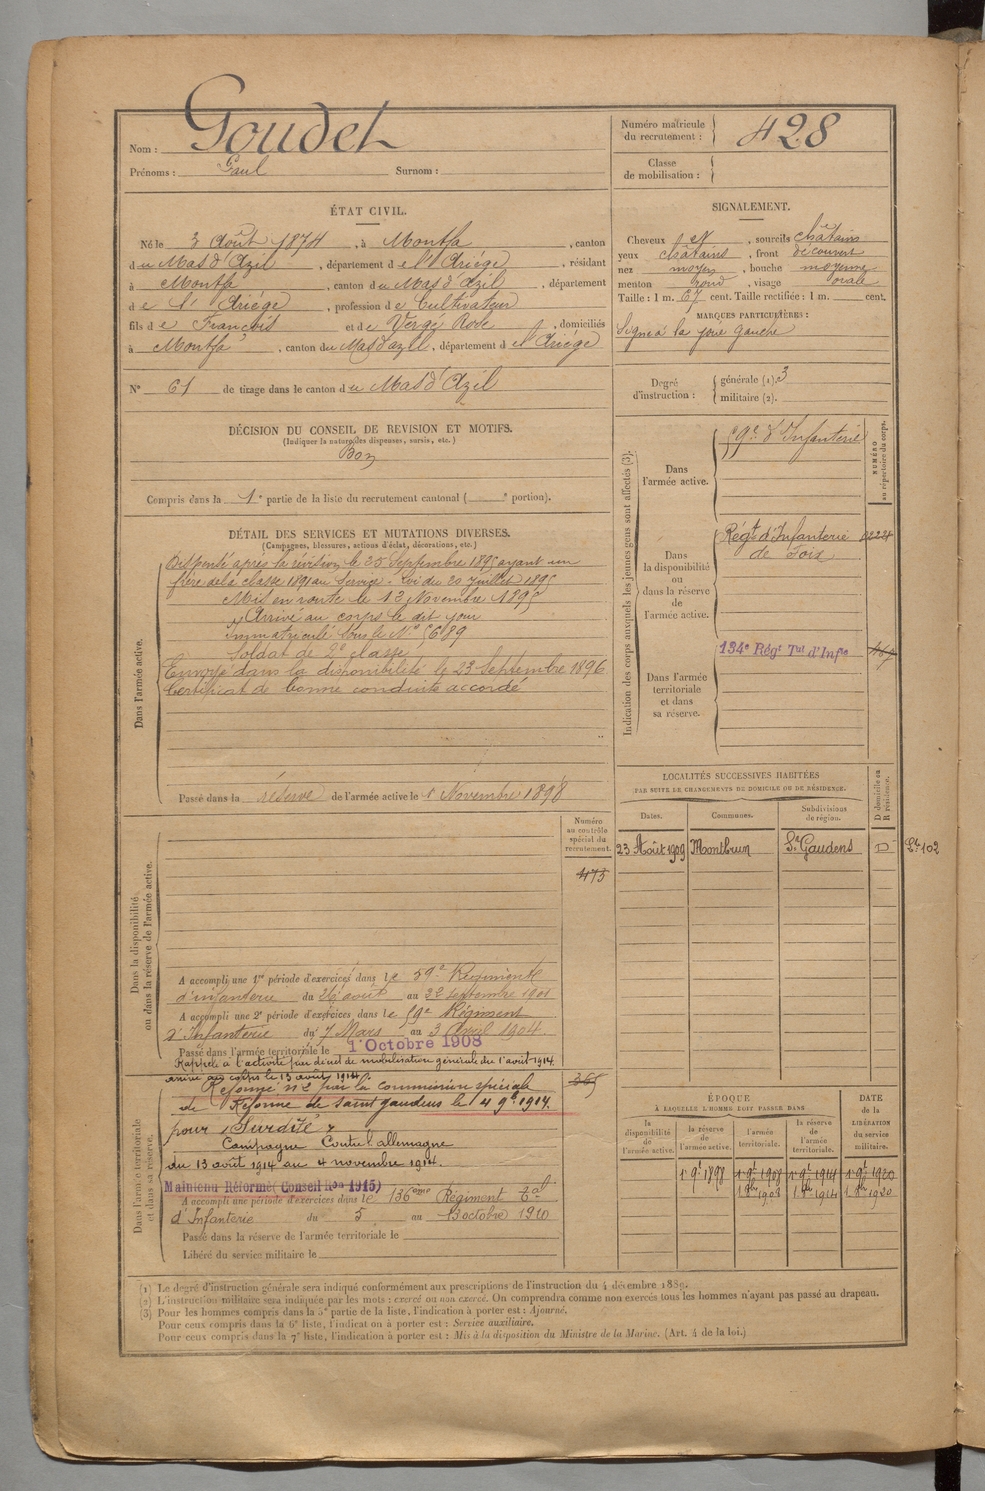 Nom : Goudet
Prénoms : Paul Surnom :
Numéro matricule du recrutement : 428
Classe de mobilisation :
ÉTAT CIVIL.
Né le 3 Août 1874, à Montfa, canton
du Mas d'Azil, département de l'Ariège, résidant
à Montfa, canton du Mas d'Azil, département
de l'Ariége, profession de Cultivateur
fils de François et de Vergé Rose, domiciliés
à Montfa, canton du Mas d'azil, département de l'Ariége
N° 61 de tirage dans le canton du Mas d'Azil
SIGNALEMENT.
Cheveux, sourcils châtains
yeux châtains, front découvert
nez moyen, bouche moyenne
menton rond, visage ovale
Taille : 1 m. 67 cent. Taille rectifiée : 1 m. cent.
MARQUES PARTICULIÈRES :
Signe à la joue gauche
Degré d'instruction : générale (1). 3
militaire (2).
DÉCISION DU CONSEIL DE REVISION ET MOTIFS.
(Indiquer la nature des dispenses, sursis, etc.)
Bon
Compris dans la 1e partie de la liste du recrutement cantonal ( e portion).
DÉTAIL DES SERVICES ET MUTATIONS DIVERSES.
(Campagnes, blessures, actions d'éclat, décorations, etc.)
Dans l'armée active.
Dispensé après la révision le 25 Septembre 1895 ayant un
frère de la classe 1891 au Service - Loi du 20 Juillet 1895
Mis en route le 12 Novembre 1895
Arrivé au corps le dit jour
Immatriculé sous le N° 5689
Soldat de 2e classe
Envoyé dans la disponibilité le 23 Septembre 1896
Certificat de bonne conduite accordé
Passé dans la réserve de l'armée active le 1 Novembre 1898
Indication des corps auxquels les jeunes gens sont affectés (3).
NUMÉRO au répertoire du corps.
Dans l'armée active.
59e d'Infanterie
Dans la disponibilité ou dans la réserve de l'armée active.
Régt d'Infanterie
de Foix
Dans l'armée territoriale et dans sa réserve.
134e Régt Tial d'Infie
LOCALITÉS SUCCESSIVES HABITÉES
PAR SUITE DE CHANGEMENTS DE DOMICILE OU DE RÉSIDENCE.
Dates. Communes. Subdivisions de région. D domicile ou R résidence.
23 Août 1909 Montbrun St Gaudens D
Dans la disponibilité ou dans la réserve de l'armée active.
Numéro au contrôle spécial du recrutement.
475
A accompli une 1re période d'exercices dans le 59e Régiment
d'infanterie du 26 août au 22 septembre 1901
A accompli une 2e période d'exercices dans le 59e Régiment
d'Infanterie du 7 Mars au 3 Avril 1904.
Passé dans l'armée territoriale le 1 Octobre 1908
Rappelé à l'activité par décret de mobilisation générale du 1 août 1914.
arrivé au corps le 13 août 1914.
Dans l'armée territoriale et dans sa réserve.
365
Réformé n° 2 par la commission spéciale
de Réforme de Saint gaudens le 4 9bre 1914.
pour "Surdité"
Campagne Contre l'allemagne
du 13 août 1914 au 4 novembre 1914.
Maintenu Réformé (Conseil Ron 1915)
A accompli une période d'exercices dans le 136eme Régiment Tal
d'Infanterie du 5 au 13 octobre 1910
Passé dans la réserve de l'armée territoriale le
Libéré du service militaire le
ÉPOQUE
À LAQUELLE L'HOMME DOIT PASSER DANS
DATE de la LIBÉRATION du service militaire.
la disponibilité de l'armée active. la réserve de l'armée active. l'armée territoriale. la réserve de l'armée territoriale.
1 9bre 1898 1 9bre 1908 1 9bre 1914 1 9bre 1920
1 8bre 1908 1 8bre 1914 1 8bre 1920
(1) Le degré d'instruction générale sera indiqué conformément aux prescriptions de l'instruction du 4 décembre 1889.
(2) L'instruction militaire sera indiquée par les mots : exercé ou non exercé. On comprendra comme non exercés tous les hommes n'ayant pas passé au drapeau.
(3) Pour les hommes compris dans la 5e partie de la liste, l'indication à porter est : Ajourné.
Pour ceux compris dans la 6e liste, l'indication à porter est : Service auxiliaire.
Pour ceux compris dans la 7e liste, l'indication à porter est : Mis à la disposition du Ministre de la Marine. (Art. 4 de la loi.)